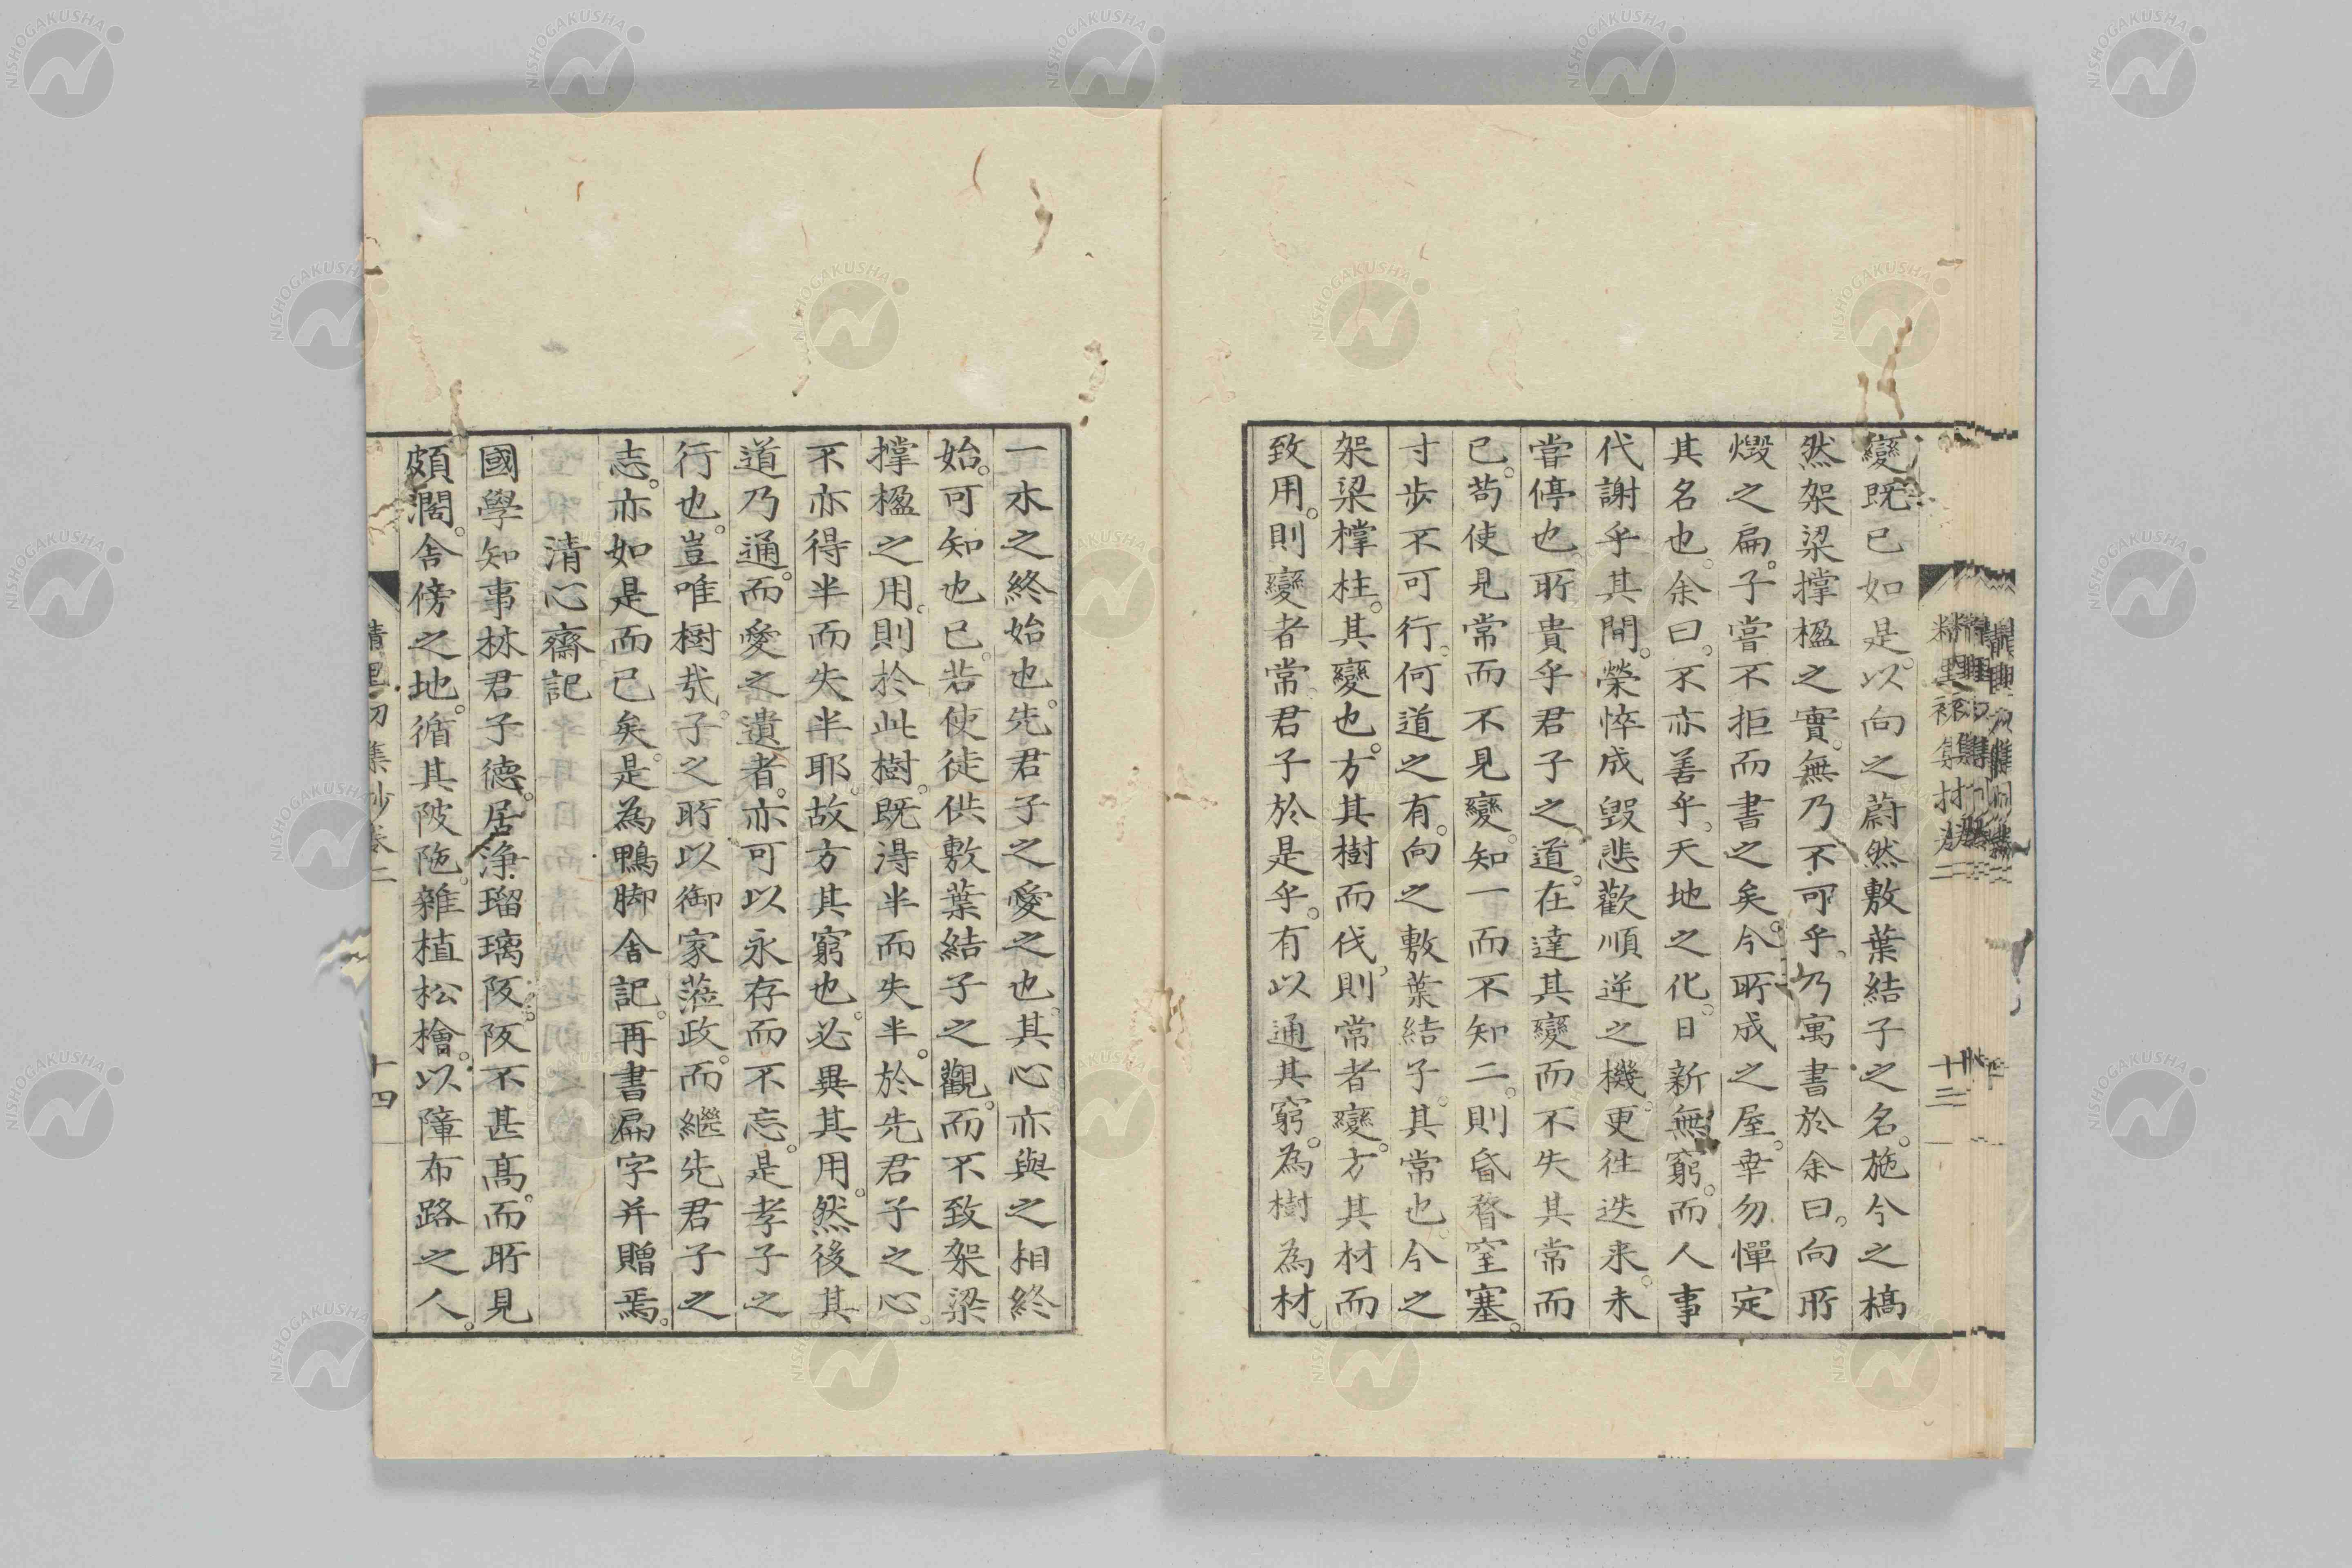 變既已如是。以向之蔚然敷葉結子之名。施今之槁
然架梁撑楹之實。無乃不可乎。乃寓書於余曰。向所
燬之扁。子嘗不拒而書之矣。今所成之屋。幸勿憚定
其名也。余曰。不亦善乎。天地之化。日新無窮。而人事
代謝乎其間。榮悴成毀悲歡順逆之機。更往迭来。未
嘗停也。所貴乎君子之道。在達其變而不失其常而
已。苟使見常而不見變。知一而不知二。則昏瞀窒塞。
寸歩不可行。何道之有。向之敷葉結子。其常也。今之
架梁撑柱。其變也。方其樹而伐。則常者變。方其材而
致用。則變者常。君子於是乎。有以通其窮。為樹為材。
十三
一木之終始也。先君子之愛之也。其心亦與之相終
始。可知也已。若使徒供敷葉結子之觀。而不致架梁
撑楹之用。則於此樹。既得半而失半。於先君子之心。
不亦得半而失半耶。故方其窮也。必異其用。然後其
道乃通。而愛之遺者。亦可以永存而不忘。是孝子之
行也。豈唯樹㢤。子之所以御家蒞政。而繼先君子之
志。亦如是而已矣。是為鴨脚舎記。再書扁字并贈焉。
清心齋記
國學知事林君子德。居浄瑠璃阪。阪不甚髙。而所見
頗濶。舎傍之地。循其陂陁。雜植松檜。以障布路之人。
十四
NISHOGAKUSHA